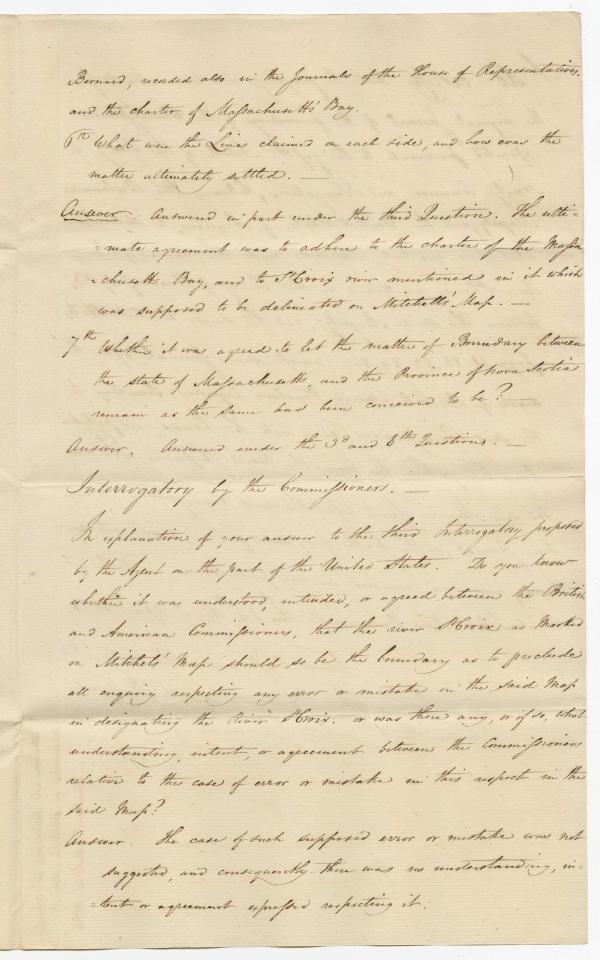 Bernard, recorded also in the Journals of the House of Representatives,
and the charter of Massachusetts Bay.
6th What were the Lines claimed on each side, and how was the
matter ultimately settled. —
Answer. Answered in part under the third Question. The ulti=
=mate agreement was to adhere to the charter of the Massa
=chusetts Bay, and to St Croix river mentioned in it which
was supposed to be delineated on Mitchell's Map. —
7th Whether it was agreed to let the matter of Boundary between
the state of Massachusetts, and the Province of Nova Scotia
remain as the same had been conceived to be? —
Answer. Answered under the 3d and 6th Questions. —
Interrogatory by the Commissioners. —
In explanation of your answer to the third Interrogatory proposed
by the Agent on the part of the United States. Do you know
whether it was understood, intended, or agreed between the British
and American Commissioners, that the river St Croix as Marked
on Mitchels' Map should so be the boundary as to preclude
all enquiry respecting any error or mistake in the said Map
in designating the River St Croix: or was there any, or if so, what
understanding, intent, or agreement between the Commissioners
relative to the case of error or mistake in this respect in the
said Map?
Answer. The case of such supposed error or mistake was not
suggested, and consequently there was no understanding, in=
=tent or agreement expressed respecting it.